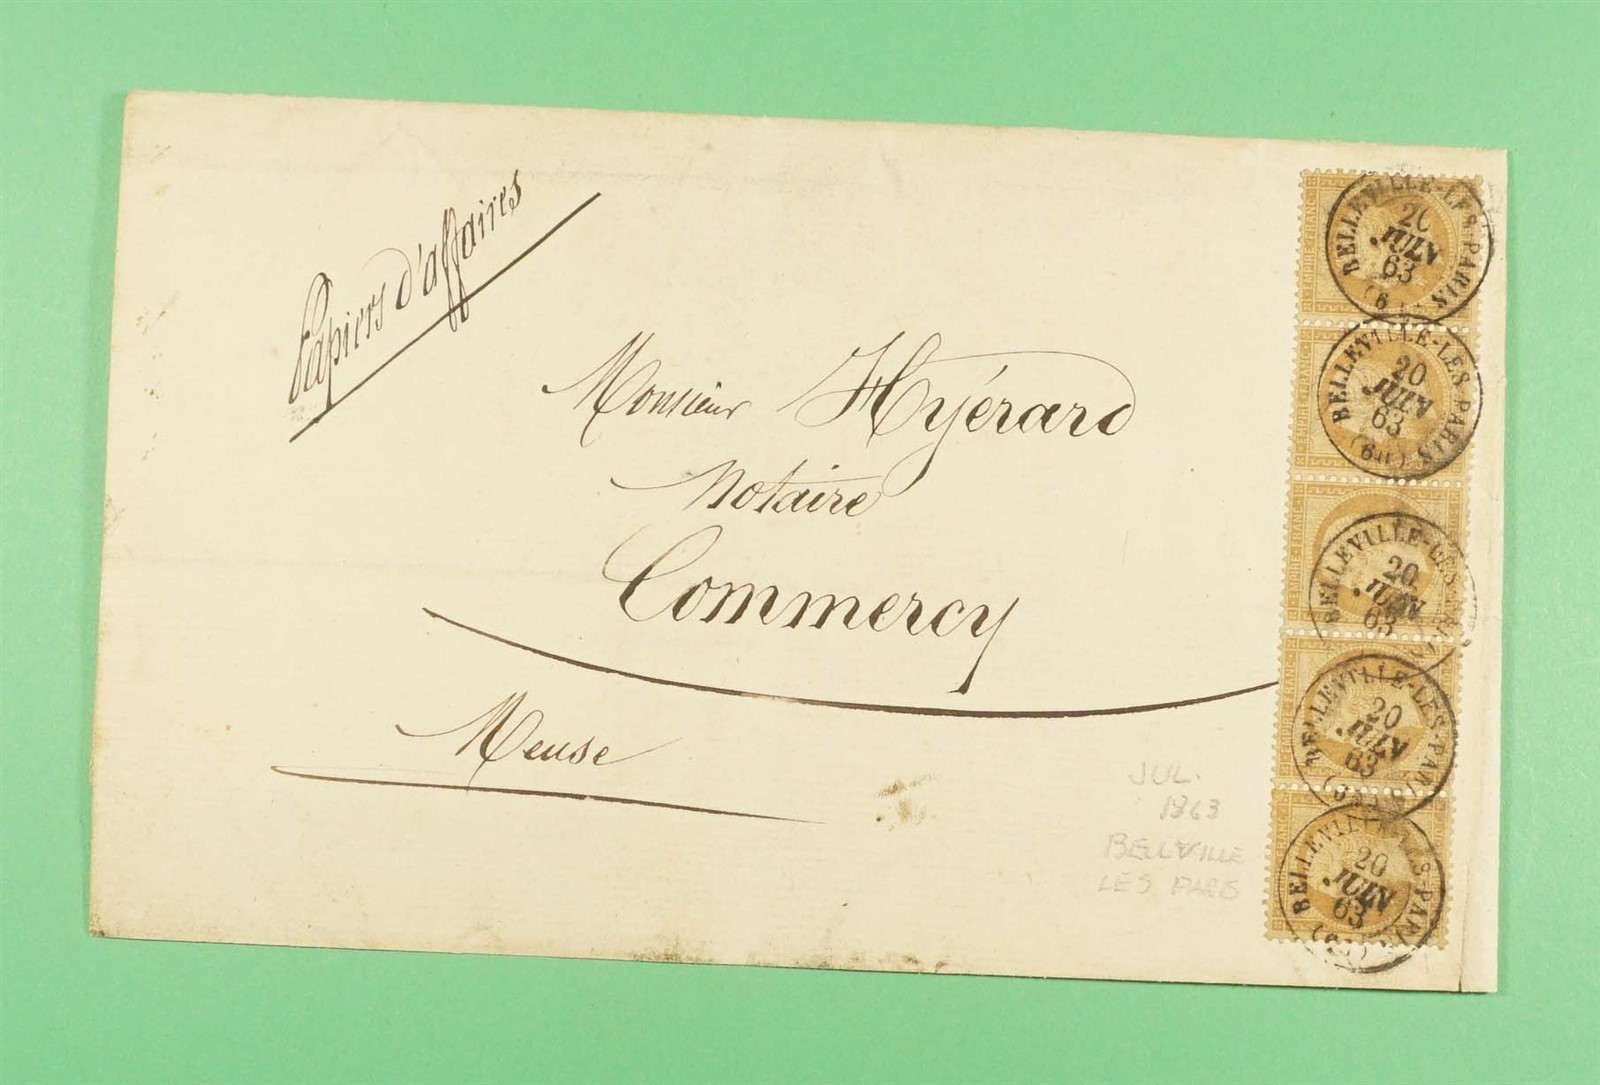 Papiers d'affaires
Monsieur Hyérard
Notaire
Commercy
Meuse
JUL.
1863
BELLEVILLE
LES PARIS
BELLEVILLE-LES-PARIS
20
JUIN
63
BELLEVILLE-LES-PARIS
20
JUIN
63
(60)
BELLEVILLE-LES-PARIS
20
JUIN
63
BELLEVILLE-LES-PARIS
20
JUIN
63
BELLEVILLE-LES-PARIS
20
JUIN
63
EMPIRE·FRANC